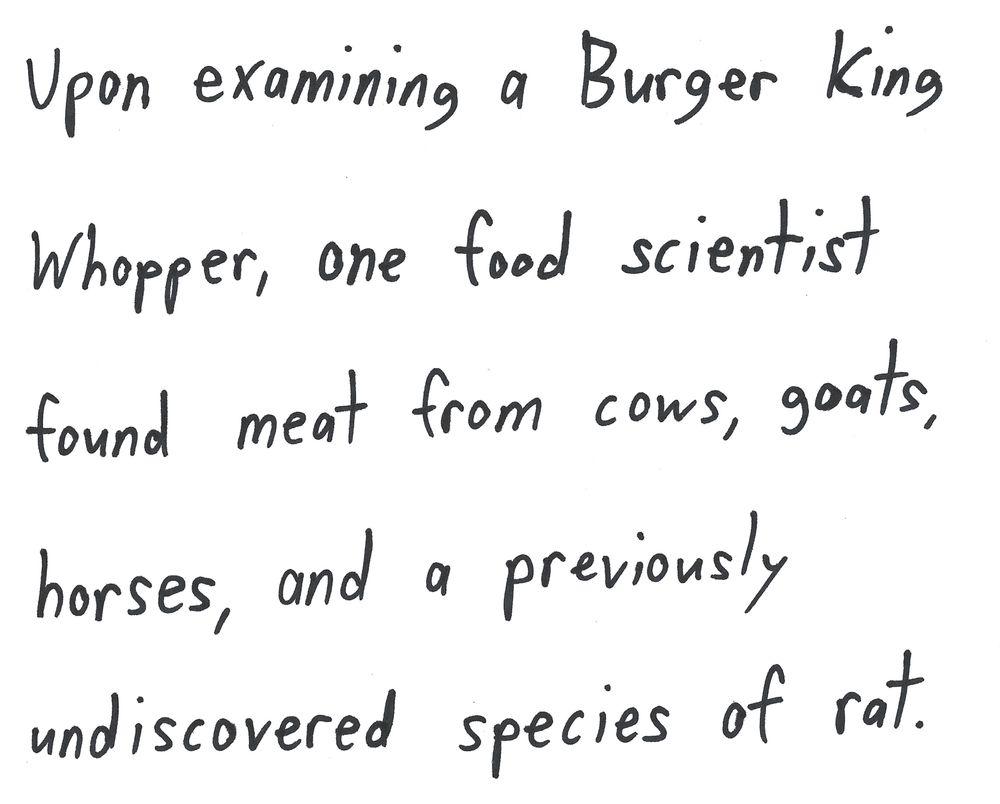 Upon examining a Burger King
Whopper, one food scientist
found meat from cows, goats,
horses, and a previously
undiscovered species of rat.